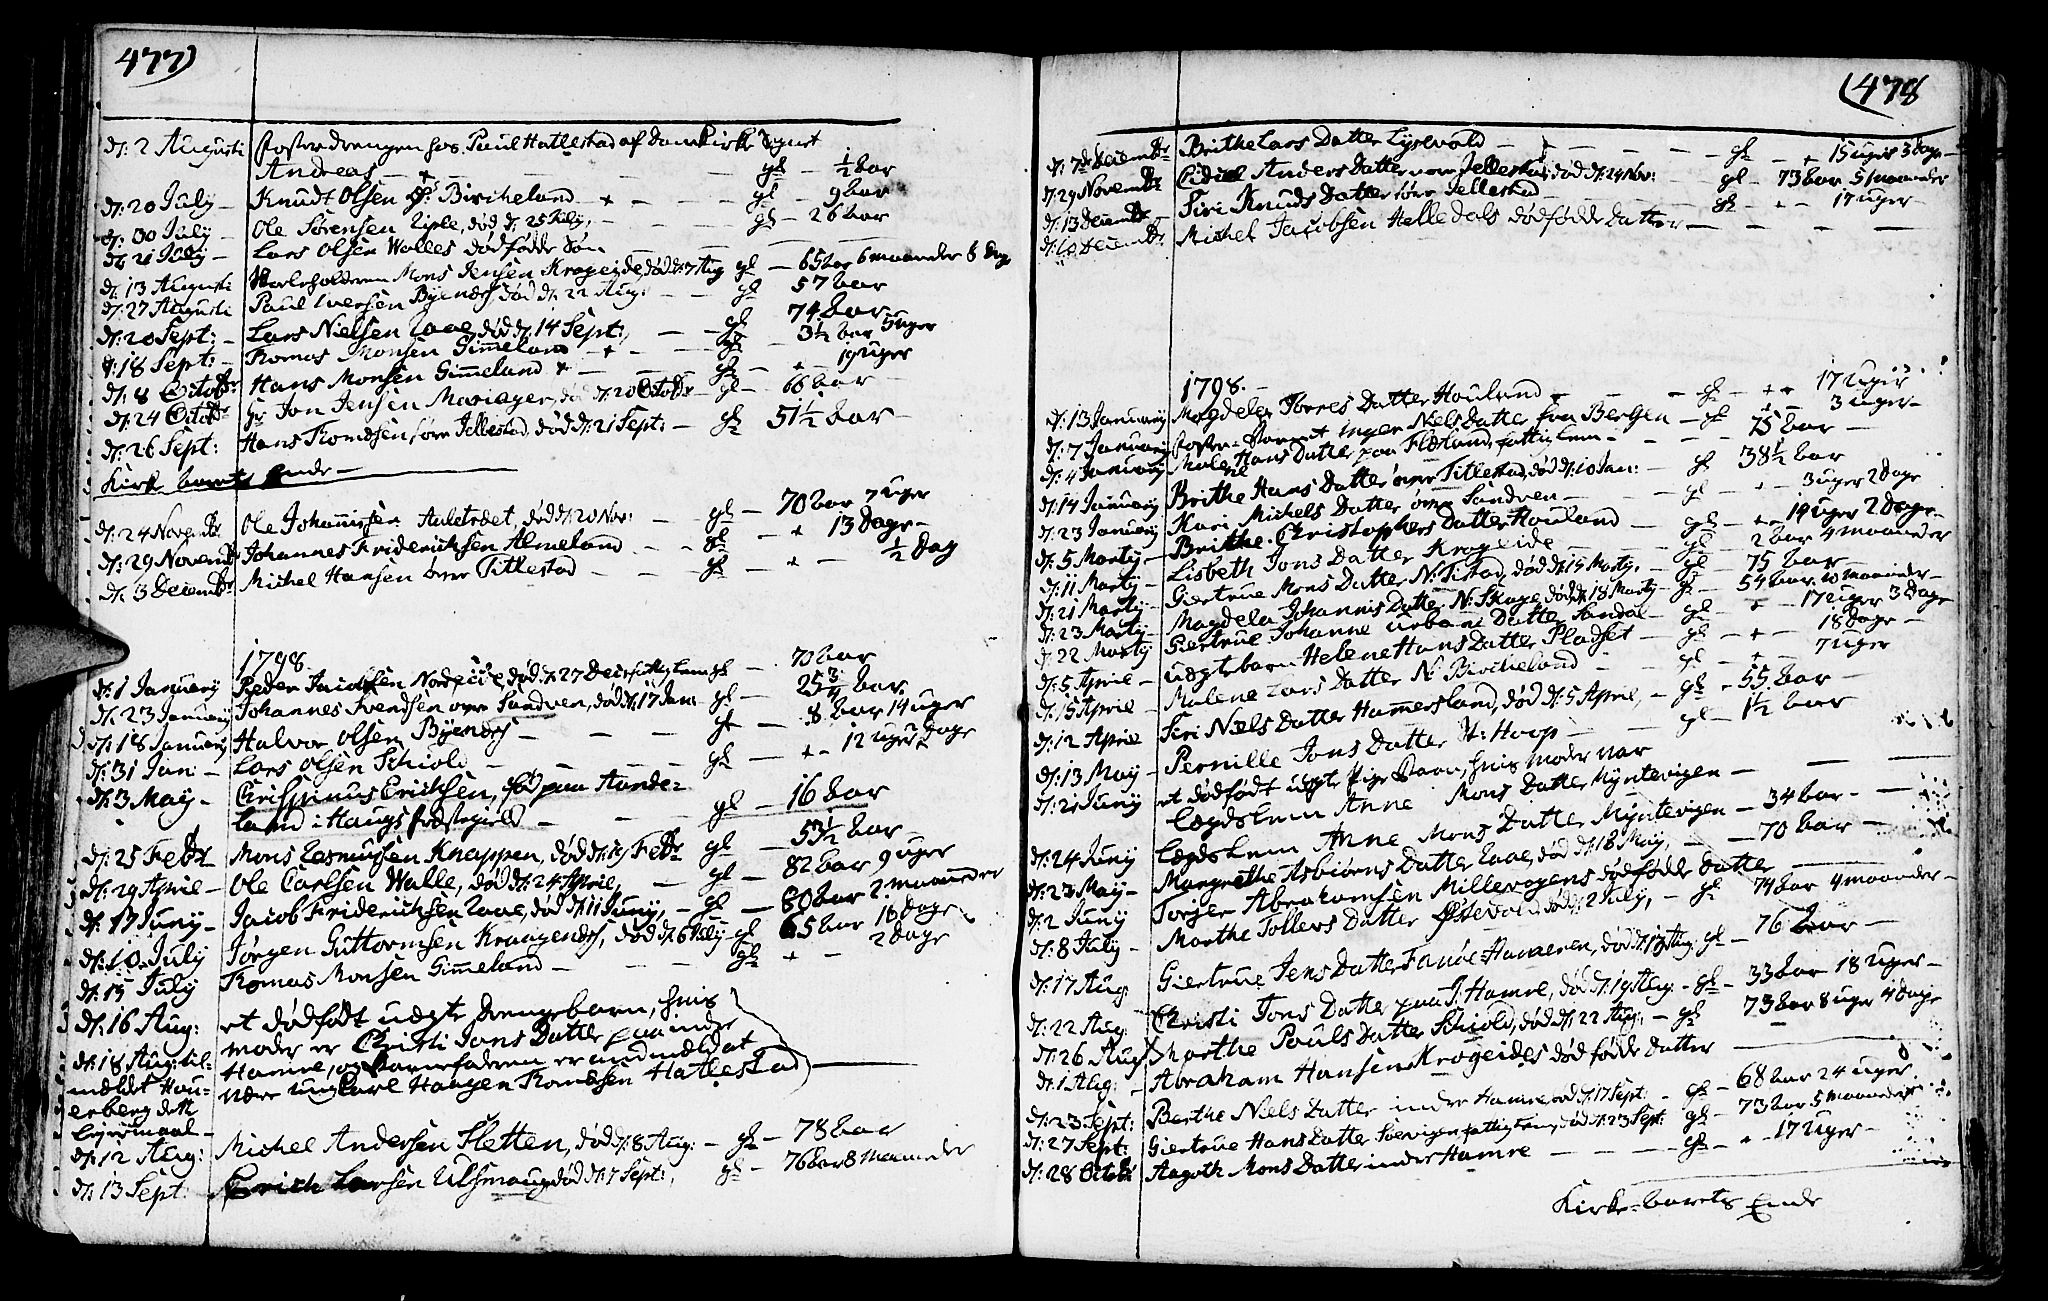 477)
d: 2 Augusti Foster drengen hos Paul Hatlestad af Dom Kirke Sognet
Andreas — + — gl — ½ aar
d: 20 July — Knudt Olsen S: Bircheland — + — gl — 9 aar
d: 30 July — Ole Sørensen Riple, død d: 25 July, — gl — 26 aar
d: 21 July — Lars Olsen Walles dødfødde Søn —
d: 13 Augusti Mons Jensen Krogeide, død d: 7 Aug gl — 65 aar 6 maaneder 8 Dage
d: 27 Augusti Paul Iversen Byenes, død d: 22 Aug: — gl — 57 aar
d: 20 Sept: — Lars Nielsen Aae, død d: 14 Sept:, — gl — 74 aar
d: 18 Sept: — Tomas Monsen Gimeland — + — gl — 3½ aar 5 uger
d: 8 Octobr Hans Monsen Gimeland + — gl — + — 19 uger
d: 24 Octobr Hr Jon Jensen Mariager, død d: 20 Octobr — gl — 66 aar —
d: 26 Sept: Hans Tomæsen søre Jellestad, død d: 21 Sept: — gl — 51½ aar —
Kirke aarets Ende —
d: 24 Novembr Ole Johannissen Auletræet, død d: 20 Nov: — gl — 70 aar 7 uger
d: 29 Novembr Johannes Fridericksen Almeland — gl — + 13 Dage —
d: 3 Decembr Michel Hansen øvre Titlestad — gl — + — ½ Dag
1798
d: 1 January Peder Jacobsen Nordeide, død d: 27 Decbr fattig Lem gl — 70 aar
d: 23 January Johannes Svendsen øvre Sandven, død d: 17 Jan: gl — 25¾ aar
d: 18 January Halvor Olsen Byenes — gl — 8 aar 14 uger
d: 31 Jan: — Lars Olsen Schiold — gl — + — 12 uger 2 Dage
d: 3 May — Crispinus Ericksen, fød paa Aande=
land i Haugs Præstegield — gl — 16 aar
d: 25 Febr Mons Rasmussen Knappen, død d: 19 Febr gl — 53½ aar
d: 29 April — Ole Carlsen Walle, død d: 24 April, — gl — 82 aar 9 uger
d: 17 Juny — Jacob Fridericksen Aae, død d: 11 Juny, — gl — 80 aar 2 maaneder
d: 10 July Jørgen Guttormsen Kraagenes, død d: 6 July gl 65 aar 18 Dage
d: 15 July Tomas Monsen Gimeland — gl — + — 2 Dage
d: 16 Aug: et dødfødt uægte Drengebarn, hvis
moder er Christi Jons Datter paa indre
d: 18 Aug: til= Hamre, og Barnefaderen er anmældet
mældt Hau= være ungkarl Haagen Tomæsen Hatlestad)
erberg dette
Leyermaal —
d: 12 Aug: Michel Andersen Sletten, død d: 8 Aug: — gl — 78 aar
d: 13 Sept: Erich Larsen Ulsmaug død d: 7 Sept:, gl — 76 aar 8 maaneder
(478
d: 7de Decembr Brithe Lars Datter Lysevold — + — gl — + 15 uger 3 Dage —
d: 29 Novembr Anders Datter Jellestad, død d: 24 Nov: gl — 73 aar 5 maaneder
d: 13 Decembr Siri Knuds Datter søre Jellestad — gl — + — 17 uger —
d: 10 Decembr Michel Jacobsen Helledals dødfødde Datter —
1798. —
d: 13 January Magdela Torres Datter Houland — gl — + — 17 uger
d: 7 January foster-Barnet Inger Niels Datter fra Bergen — gl — 3 uger —
d: 4 January Malene Hans Datter paa Flæsland, fattig Lem — 75 aar —
d: 14 January Brithe Hans Datter øvre Titlestad, død d: 10 Jan: — gl 38½ aar
d: 23 January Kari Michels Datter øvre Sandven — gl — + — 3 uger 2 Dage
d: 5 Marty — Brithe Christophers Datter Houland — gl — + — 14 uger 2 Dage —
d: 11 Marty — Lisbeth Jons Datter Krogeide — gl — 2 aar 4 maaneder
d: 21 Marty — Giertrue Mons Datter N: Titlestad, død d: 15 Marty, — gl — 75 aar
d: 23 Marty — Magdela Johannis Datter N: Skage, død d: 18 Marty — gl — 54 aar 10 maaneder —
d: 22 Marty Giertrue Johanne Urbani Datter Sandal — gl — + — 17 uger 3 Dage
d: 5 April — uægte barn Helene Hans Datter Pladset — gl — + — 18 Dage —
d: 15 April — Malene Lars Datter N: Bircheland — gl — + — 7 uger
d: 12 April Siri Niels Datter Hammersland, død d: 5 April, — gl — 55 aar —
d: 13 May — Pernille Jons Datter St: Hoop — gl — 1½ aar
d: 21 Juny et dødfødt uægte Pige Barn, hvis moder var
Lægdslem Anne Mons Datter Myntevigen —
d: 24 Juny Lægdslem Anne Mons Datter Myntevigen — 34 aar —
d: 23 May — Margrethe Asbiørns Datter Aae, død d: 18 May, — 70 aar —
d: 2 Juny Torger Abrahamsen Millevogens dødfødde Datter —
d: 8 July — Marthe Tollevs Datter Østevold, død d: 2 July, — gl 74 aar 4 maaneder —
d: 17 Aug: Giertrue Jens Datter Fanøe-Hameren, død d: Aug: gl — 76 aar —
d: 22 Aug: Christi Jons Datter paa I: Hamre, død d: 19 Aug: — gl — 33 aar 18 uger —
d: 26 Aug: Marthe Pauls Datter Schiold, død d: 22 Aug: — gl 73 aar 8 uger 4 Dage
d: 1 Aug: — Abraham Hansens Krogeides dødfødde Datter —
d: 23 Sept: Barthe Niels Datter indre Hamre død d: 17 Sept: — gl — 68 aar 24 uger
d: 27 Sept: Giertrue Hans Datter Søevigen fattig Lem, død d: 23 Sept: gl — 73 aar 5 maaneder
d: 28 Octobr Aagoth Mons Datter indre Hamre — gl — + — 17 uger —
Kirke-aarets Ende